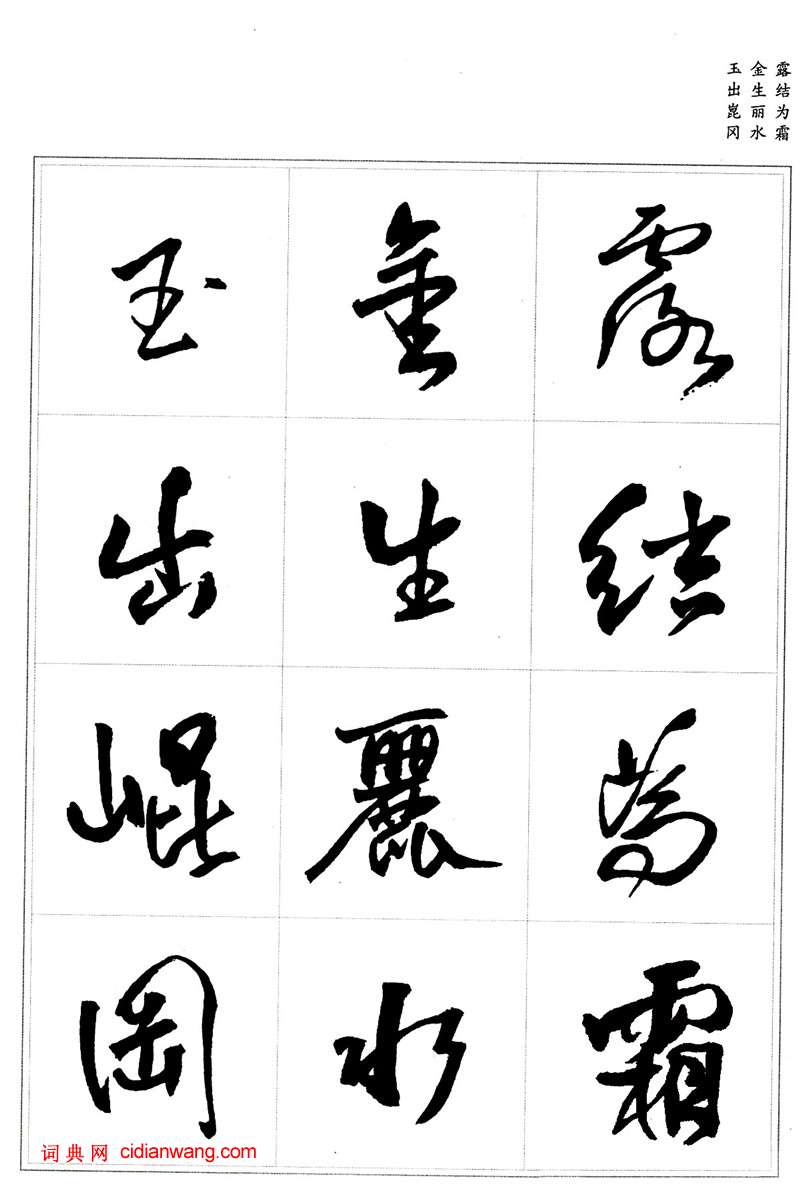 露结为霜
金生丽水
玉出崑冈
露結為霜
金生麗水
玉出崐岡
词典网 cidianwang.com